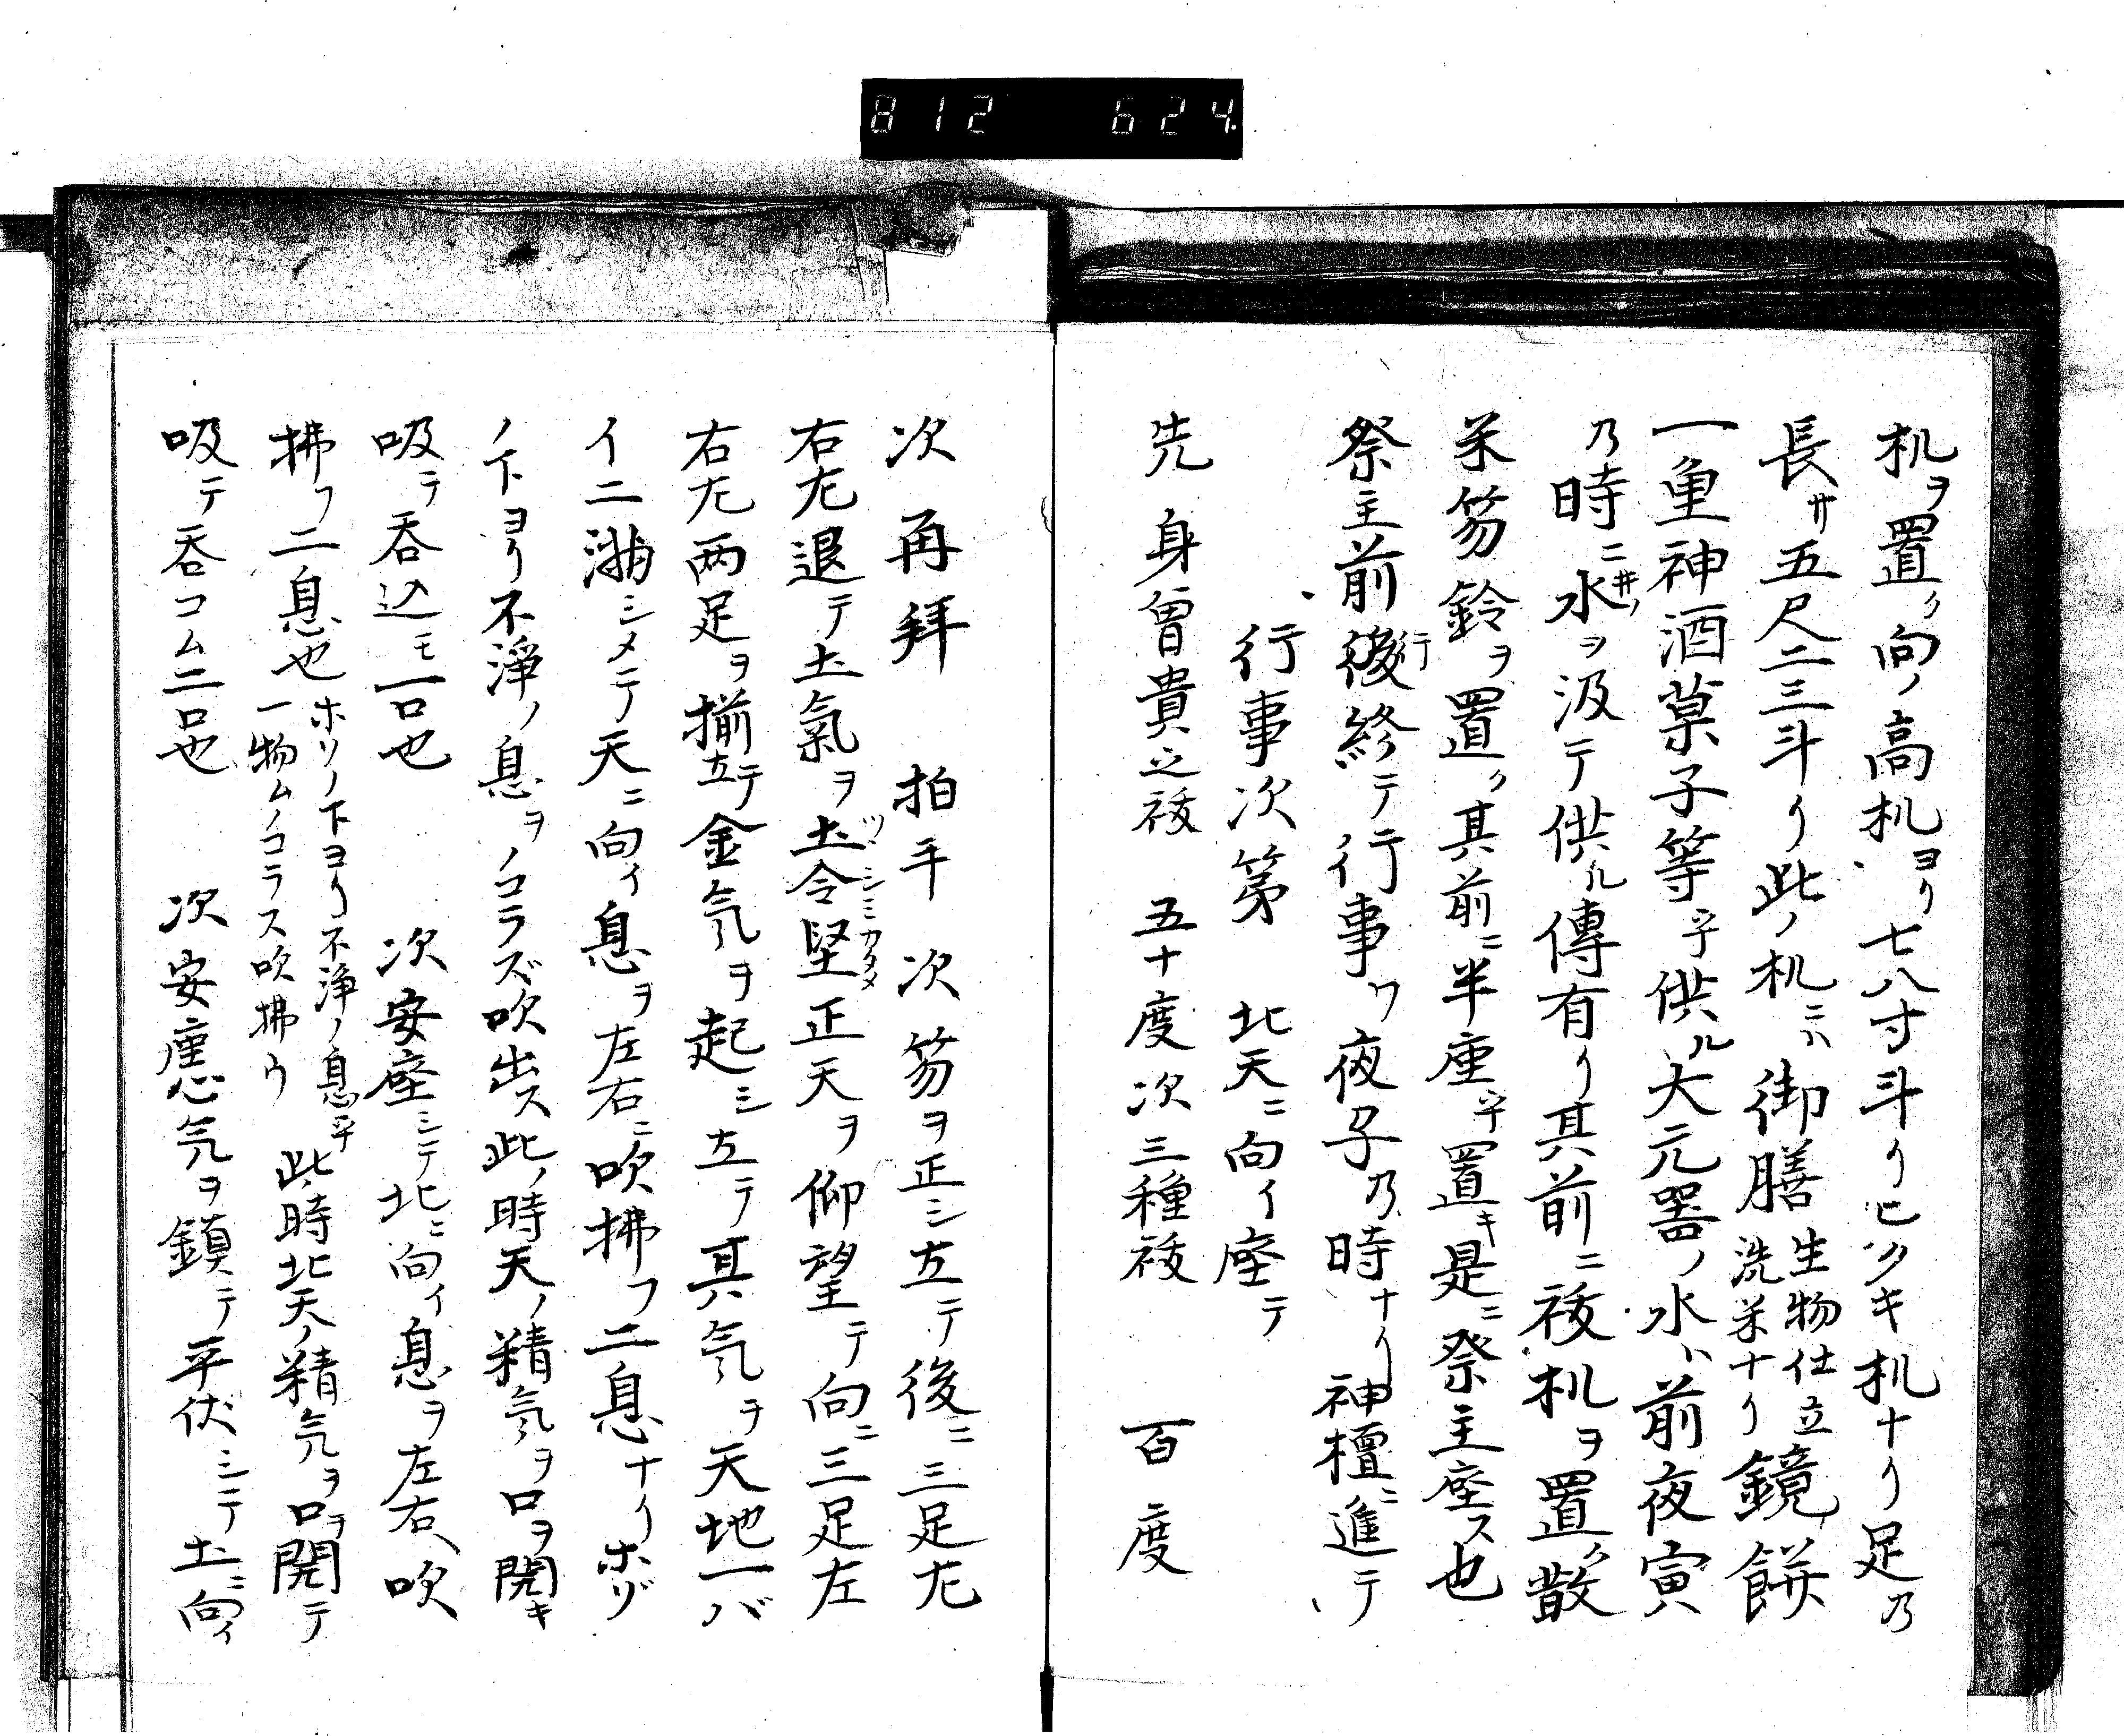 812 624
机ヲ置ク向ノ高机ヨリ七八寸斗リヒクキ机ナリ足乃
長サ五尺二三斗リ此ノ机ニハ御膳生物仕立洗米ナリ鏡餅
一重神酒菓子等ヲ供ル大元器ノ水ハ前夜寅
乃時ニ井ノ水ヲ汲テ供ル傳有リ其前ニ祓机ヲ置ク散
米笏鈴ヲ置ク其前ニ半座ヲ置キ是ニ祭主座ス也
祭主前後行終テ行事ウ夜子乃時ナリ神檀ニ進テ
行事次第 北天ニ向イ座テ
先身曽貴之祓 五十度次三種祓 百度
次再拜 拍手 次笏ヲ正シ立テ後ニ三足尢
右尢退テ土氣ヲ土令堅ツシミカタメ正天ヲ仰望テ向ニ三足左
右尢两足ヲ揃立テ金気ヲ起シ立テ其気ヲ天地一バ
イニ満シメテ天ニ向イ息ヲ左右ニ吹拂フ二息ナリホゾ
ノ下ヨリ不淨ノ息ヲノコラズ吹出ス此ノ時天ノ精気ヲ口ヲ開キ
吸テ呑込モ一口也 次安座シテ北ニ向イ息ヲ左右ヘ吹
拂フ二息也ホゾノ下ヨリ不淨ノ息ヲ一物ムノコラス吹拂ウ 此時北天ノ精気ヲ口ヲ開テ
吸テ呑コム二口也 次安座心気ヲ鎮テ平伏シテ土ニ向イ